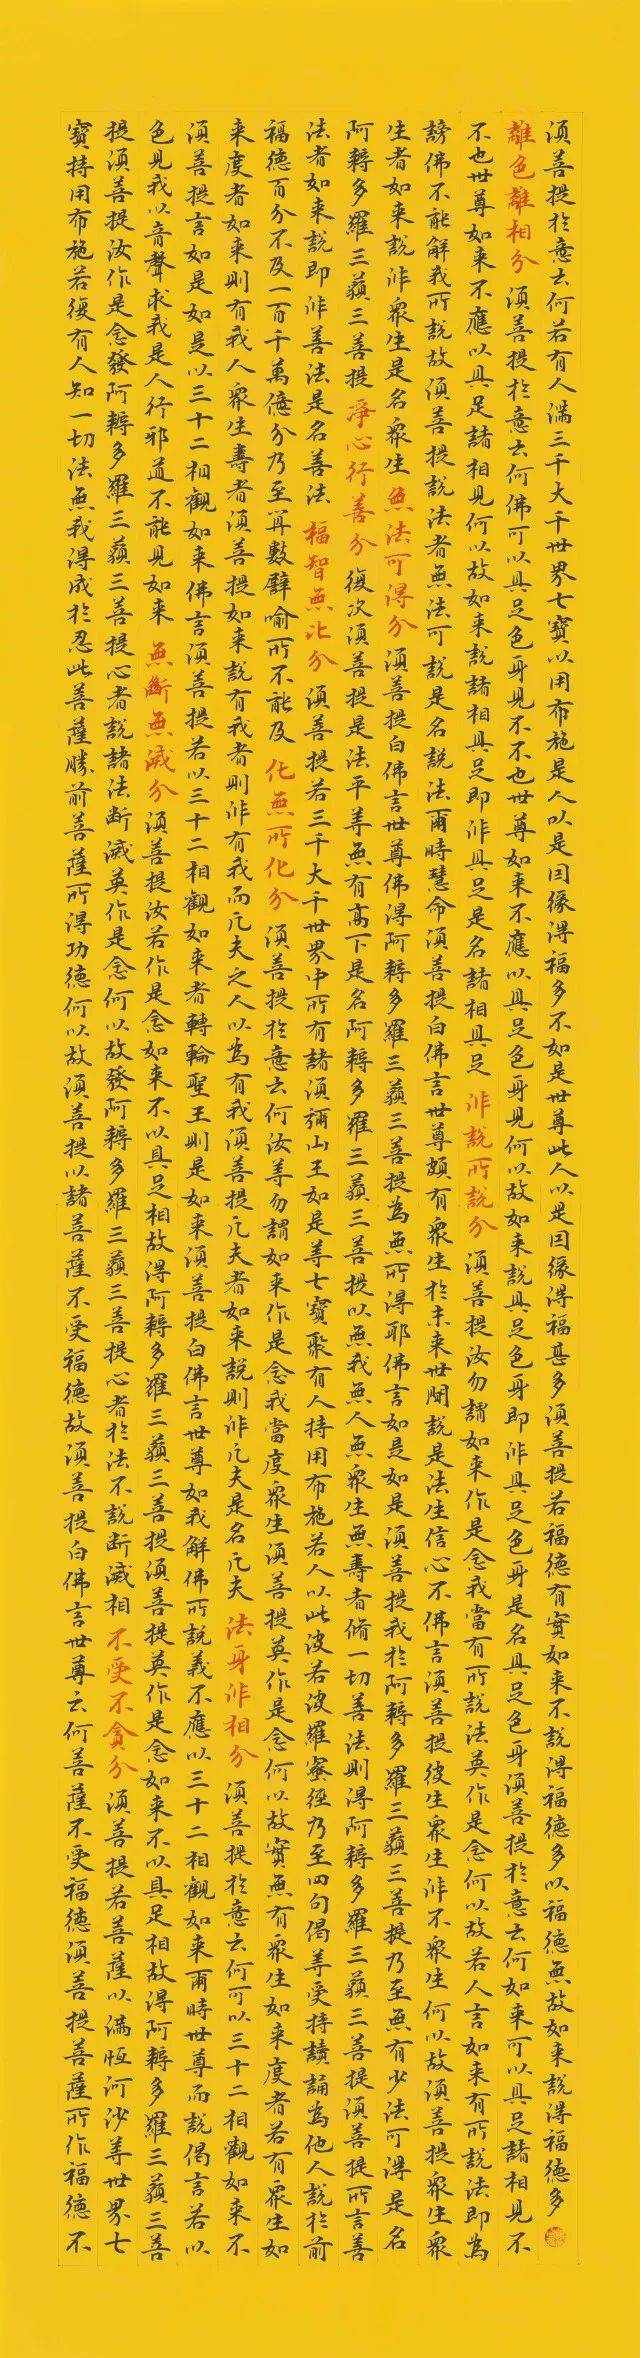 須菩提於意云何若有人滿三千大千世界七寶以用布施是人以是因緣得福多不如是世尊此人以是因緣得福甚多須菩提若福德有實如來不說得福德多以福德無故如來說得福德多
離色離相分 須菩提於意云何佛可以具足色身見不不也世尊如來不應以具足色身見何以故如來說具足色身即非具足色身是名具足色身須菩提於意云何如來可以具足諸相見不
不也世尊如來不應以具足諸相見何以故如來說諸相具足即非具足是名諸相具足 非說所說分 須菩提汝勿謂如來作是念我當有所說法莫作是念何以故若人言如來有所說法即為
謗佛不能解我所說故須菩提說法者無法可說是名說法爾時慧命須菩提白佛言世尊頗有眾生於未來世聞說是法生信心不佛言須菩提彼生眾生非不眾生何以故須菩提眾生眾
生者如來說非眾生是名眾生 無法可得分 須菩提白佛言世尊佛得阿耨多羅三藐三菩提為無所得耶佛言如是如是須菩提我於阿耨多羅三藐三菩提乃至無有少法可得是名
阿耨多羅三藐三菩提 淨心行善分 復次須菩提是法平等無有高下是名阿耨多羅三藐三菩提以無我無人無眾生無壽者脩一切善法則得阿耨多羅三藐三菩提須菩提所言善
法者如來說即非善法是名善法 福智無比分 須菩提若三千大千世界中所有諸須彌山王如是等七寶聚有人持用布施若人以此波若波羅蜜經乃至四句偈等受持讀誦為他人說於前
福德百分不及一百千萬億分乃至算數譬喻所不能及 化無所化分 須菩提於意云何汝等勿謂如來作是念我當度眾生須菩提莫作是念何以故實無有眾生如來度者若有眾生如
來度者如來則有我人眾生壽者須菩提如來說有我者則非有我而凡夫之人以為有我須菩提凡夫者如來說則非凡夫是名凡夫 法身非相分 須菩提於意云何可以三十二相觀如來不
須菩提言如是如是以三十二相觀如來佛言須菩提若以三十二相觀如來者轉輪聖王則是如來須菩提白佛言世尊如我解佛所說義不應以三十二相觀如來爾時世尊而說偈言若以
色見我以音聲求我是人行邪道不能見如來 無斷無滅分 須菩提汝若作是念如來不以具足相故得阿耨多羅三藐三菩提須菩提莫作是念如來不以具足相故得阿耨多羅三藐三菩
提須菩提汝作是念發阿耨多羅三藐三菩提心者說諸法斷滅莫作是念何以故發阿耨多羅三藐三菩提心者於法不說斷滅相 不受不貪分 須菩提若菩薩以滿恒河沙等世界七
寶持用布施若復有人知一切法無我得成於忍此菩薩勝前菩薩所得功德何以故須菩提以諸菩薩不受福德故須菩提白佛言世尊云何菩薩不受福德須菩提菩薩所作福德不